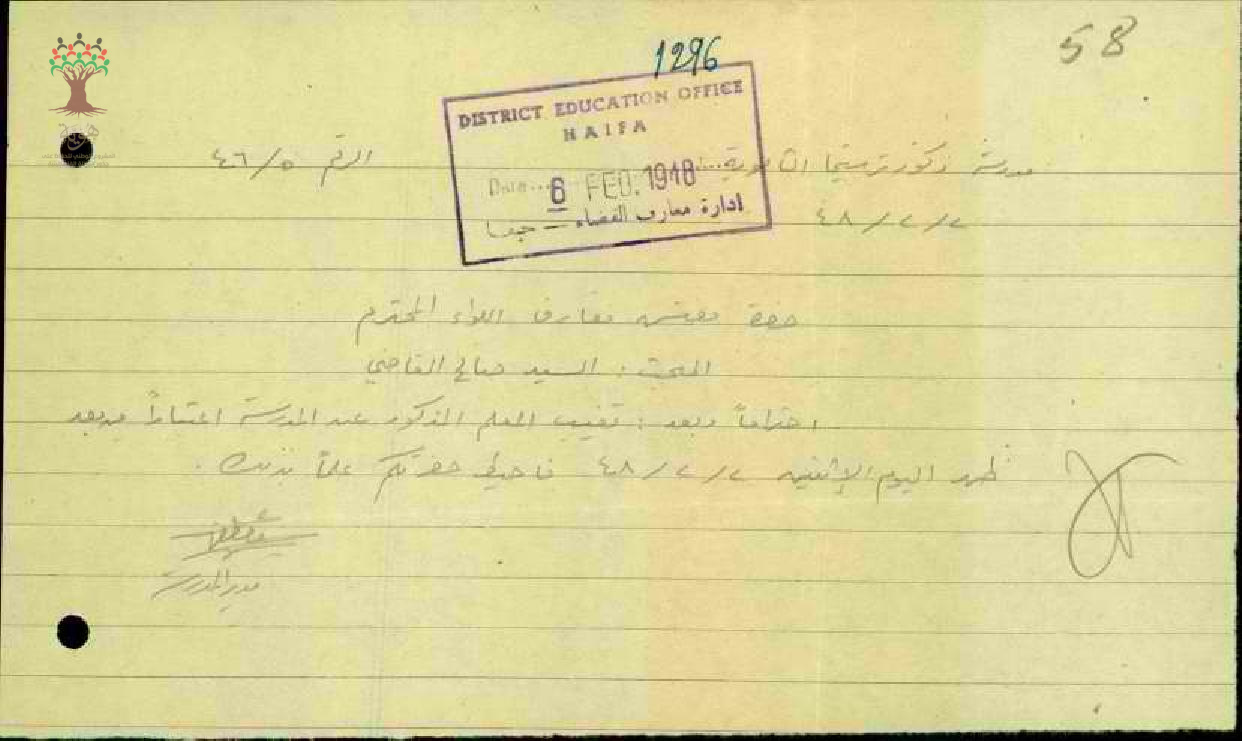 58
1296
DISTRICT EDUCATION OFFICE
HAIFA
Date... 6 FEB. 1948
ادارة معارف القضاء — حيفا
مدرسة ذكور ترشيحا الثانوية
الرقم ٤٦/٥
٢/٢/٤٨
حضرة مفتش معارف اللواء المحترم
المبحث : السيد صالح القاضي
احتراماً وبعد : تغيب المعلم المذكور عن المدرسة اعتباراً من بعد
ظهر اليوم الإثنين ٢/٢/٤٨ فاحيط حضرتكم علماً بذلك .
مدير المدرسة
هوية